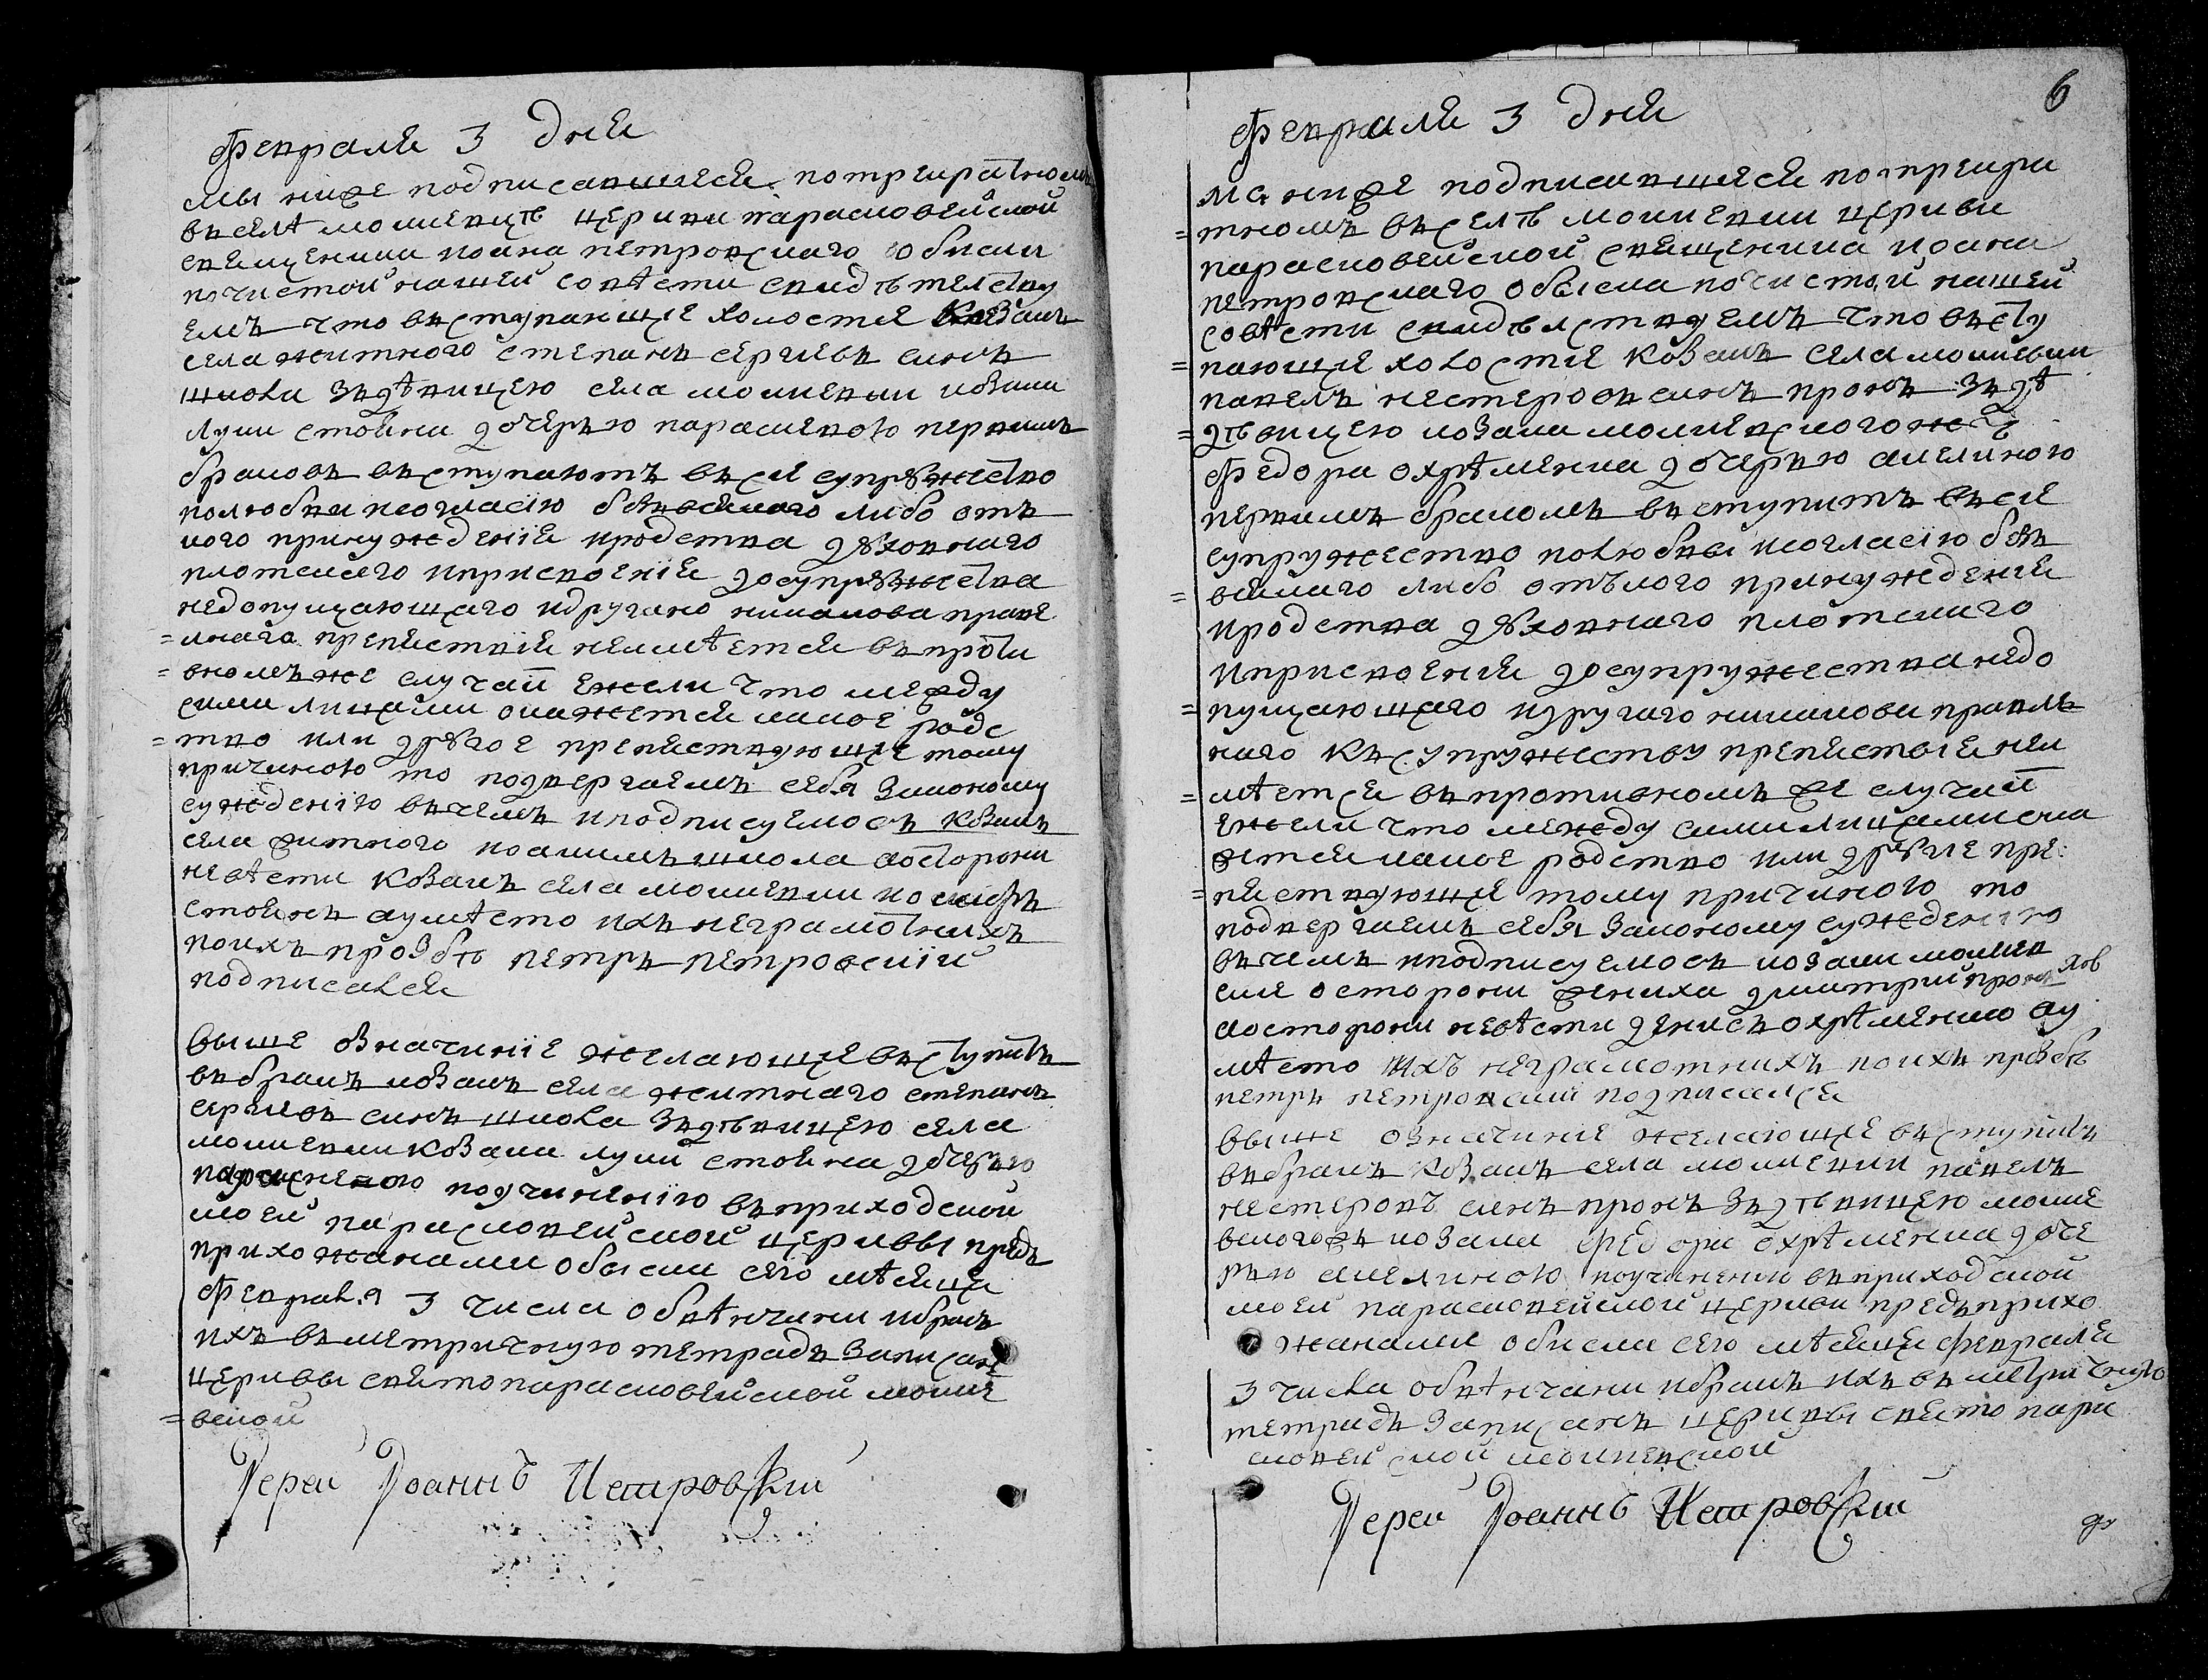 февраля 3 дня
мы ниже подписавшиеся по треиратном
въ селѣ мошенцѣ церкви парасковейской
священика иоана петровскаго о обиски
по чистой нашей совѣсти свидѣтелству
емъ что въступающие холостие Козакъ
села житного степанъ сергиевъ синъ
шкова зъ дѣвицею села мошенки козака
луки стояна дочерью параскевою первимъ
бракомъ въступаютъ въ сие супружество
по любви и согласию безъ всякаго либо отъ
кого принуждения и родства духовнаго
плотскаго и присвоения до супружества
недопущающаго и другаго никакова праве
=лнаго препятствия не имѣется въ проти
=вномъ же случаи ежели что между
сими лицами окажется какое родс
=тво или другое препятствующие тому
причиною то подвергаемъ себя законому
суждению въ чемъ и подписуемось козакъ
села житного иоакимъ школа а о сторони
невѣсти козакъ села мошенки иосифъ
стоянъ а умѣсто ихъ неграмотнихъ
по ихъ прозбѣ петръ петровский
подписался
више означиние желающие въступить
въ бракъ козакъ села житнаго степанъ
сергиевъ синъ шкова зъ дѣвицею села
мошенки козака луки стояна дочерью
параскевою по учинению въ приходской
моей парасковейской церкви предъ
прихожанами обыски сего мѣсяца
февраля 3 числа обвѣнчани и бракъ
ихъ въ метричную тетрадь записанъ
церкви святопарасковейской моше
=нской
Иерей Иоаннъ Петровский
6
февраля 3 дня
мы ниже подписавшиеся по треира
=тномъ въ селѣ мошенки церкви
парасковейской священика иоана
петровскаго обыска по чистой нашей
совѣсти свидѣлствуемъ что въсту
=пающие холостие козакъ села мошенки
павелъ нестеровъ синъ пронъ зъ дѣ
=дѣвицею козака мошенского жъ
федора охрѣменка дочерью акелиною
первимъ бракомъ въступитъ въ сие
супружество по любви и согласию безъ
=всякаго либо отъ кого принуждения
и родства духовнаго плотскаго
и присвоения до супружества недо
=пущающаго и другаго никакова правил
наго къ супружеству препятствие неи
=мѣется въ противномъ же случаи
ежели что между сими лицами ока
жется какое родство или другие пре
=пятствующие тому причиною то
подвергаемъ себя законому суждению
въ чемъ и подписуемось козаки мошен
ские о сторони жениха дмитрий прон
а о сторони невѣсти денисъ охрѣменко а у
мѣсто ихъ неграмотнихъ по ихъ прозбѣ
петръ петровский подписался
више означиние желающие въступить
въ бракъ козакъ села мошенки павелъ
нестеровъ синъ пронъ зъ дѣвицею моше
нского жъ козака федора охрѣменка доче
рью акелиною по учинению въ приходской
моей парасковейской церкви предъ прихо
жанами обиска сего мѣсяця февраля
3 числа обвѣнчани и бракъ ихъ въ метричную
тетрадь записанъ церкви святопара
сковейской мошенской
Иерей Иоаннъ Петровский